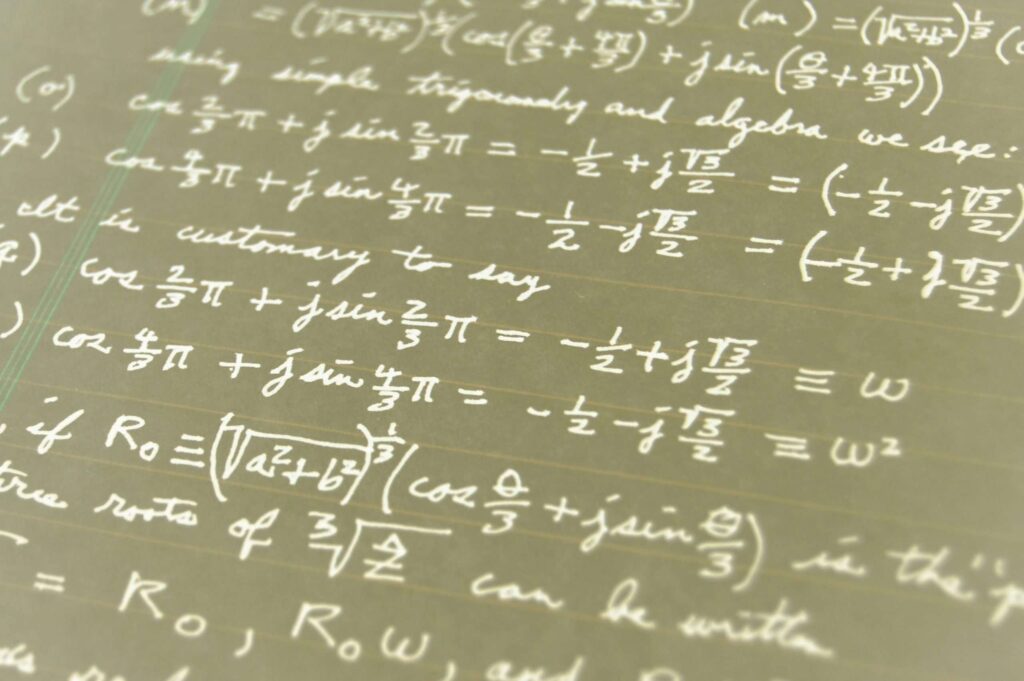 (m) = (√a²+b²)^(1/3) (cos(θ/3 + 4π/3) + j sin(θ/3 + 4π/3)) (m) = (√a²+b²)^(1/3)
using simple trigonometry and algebra we see:
(o) cos 2/3 π + j sin 2/3 π = -1/2 + j √3/2 = (-1/2 - j √3/2)
(p) cos 4/3 π + j sin 4/3 π = -1/2 - j √3/2 = (-1/2 + j √3/2)
It is customary to say
cos 2/3 π + j sin 2/3 π = -1/2 + j √3/2 ≡ ω
) cos 4/3 π + j sin 4/3 π = -1/2 - j √3/2 ≡ ω²
, if R₀ ≡ (√a²+b²)^(1/3) (cos θ/3 + j sin θ/3) is the "
roots of ∛Z can be written
= R₀, R₀ω, and